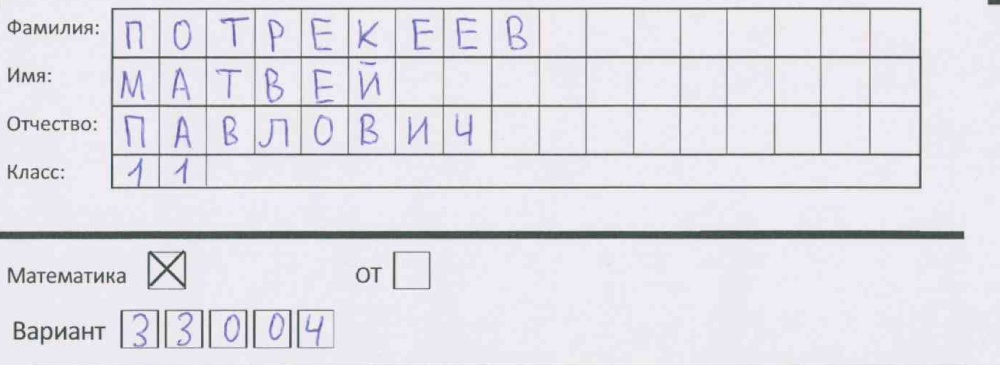 Фамилия: ПОТРЕКЕЕВ
Имя: МАТВЕЙ
Отчество: ПАВЛОВИЧ
Класс: 11
Математика ОТ
Вариант 33004